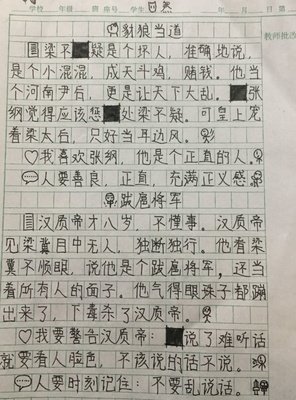 学校 年级 班 座号 学生 年 月 日 第
教师批改
豺狼当道
梁不疑是个坏人，准确地说，
是个小混混，成天斗鸡，赌钱。他当
个河南尹后，更是让天下大乱。张
纲觉得应该惩处梁不疑。可皇上宠
着梁太后，只好当耳边风。
♡我喜欢张纲，他是个正直的人。
人要善良，正直，充满正义感
跋扈将军
汉质帝才八岁，不懂事。汉质帝
见梁冀目中无人，独断独行。他看梁
冀不顺眼，说他是个跋扈将军，还当
着所有人的面子。他气得眼珠子都蹦
出来了，下毒杀了汉质帝。
♡我要警告汉质帝：说了难听话
就要看人脸色，不该说的话不说。
人要时刻记住：不要乱说话。